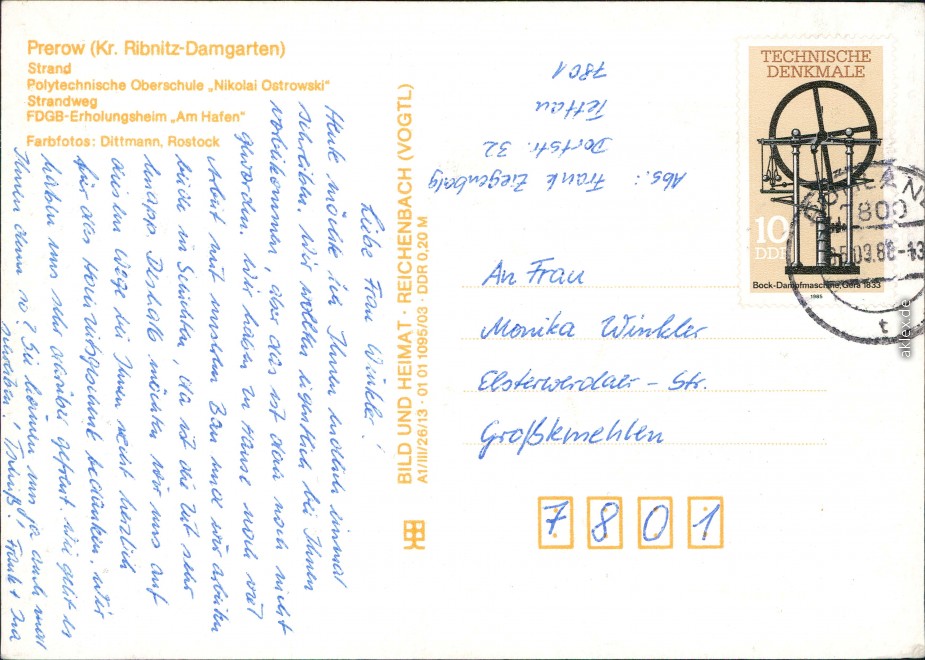 Prerow (Kr. Ribnitz-Damgarten)
Strand
Polytechnische Oberschule „Nikolai Ostrowski"
Strandweg
FDGB-Erholungsheim „Am Hafen"
Farbfotos: Dittmann, Rostock
Liebe Frau Winkler!
Heute möchte ich Ihnen endlich einmal
schreiben. Wir wollten eigentlich bei Ihnen
vorbeikommen, aber das ist dann noch nicht
geworden. Wir haben zu Hause noch viel
Arbeit mit unserem Bau und wir arbeiten
beide in Schichten, da ist die Zeit sehr
knapp. Deshalb möchten wir uns auf
diesem Wege bei Ihnen recht herzlich
für das bedanken. Wir
haben uns sehr darüber gefreut. Wie geht es
Ihnen denn so? Sie können uns ja auch mal
schreiben. Tschüß! Frank
BILD UND HEIMAT · REICHENBACH (VOGTL)
A1/III/26/13 · 01 01 1095/03 · DDR 0,20 M
Abs.: Frank Ziegenbalg
Dorfstr. 32
Tettau
7801
TECHNISCHE
DENKMALE
10
DDR
Bock-Dampfmaschine, Gera 1833
1985
7800
03.88-13
t
An Frau
Monika Winkler
Elsterwerdaer-Str.
Großkmehlen
7801
aklex.de